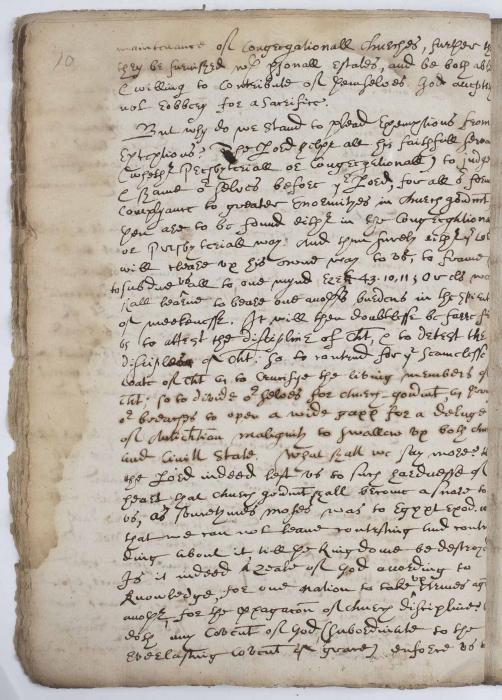 10
maintenance of Congregationall Churches, further
they be furnished wth psonall Estates, and be both
& willing to Contribute of themselves. God accepts
not robbery for a Sacrifice.
But why do we stand to plead Exemptions from
Exceptions? The Lord helpe all his faithfull
(whethr Presbyteriall or Congregationall) to judge
& shame or selves before ye Lord, for all or
Complyance to greater enormityes in Church govmt
then are to be found eithr in the Congregationall
or Presbyteriall way. And then surely eithr ye Lord
will cleare up his owne way to us, to frame
to subdue us all to one mynd Ezek 43.10,11; Or els we
shall learne to beare one anothrs burdens in the spirit
of meeknesse. It will then doubtlesse be farre
us to attest the discipline of Cht, & to detest the
disciples of Cht: so to contend for ye seamelesse
coate of Cht as to Crucifye the living members of
Cht; so to divide or selves for church-govmt, as
or breaches to open a wide gapp for a deluge
of Antichtian malignity to swallow up both
and Civill State. What shall we say more
the Lord indeed left us to such hardnesse of
heart that church govmt shall become a snare to
us, as sometymes Moses was to Egypt Exod.
that we can not leave contesting and
ding about it till the Kingdome be destroyed
Is it indeed a zeale of God according to
Knowledge, for one nation to take up Armes
anothr for the ppagacon of church discipline
doth any Covent of God (subordinate to the
Everlasting Covent of grace) enforce us